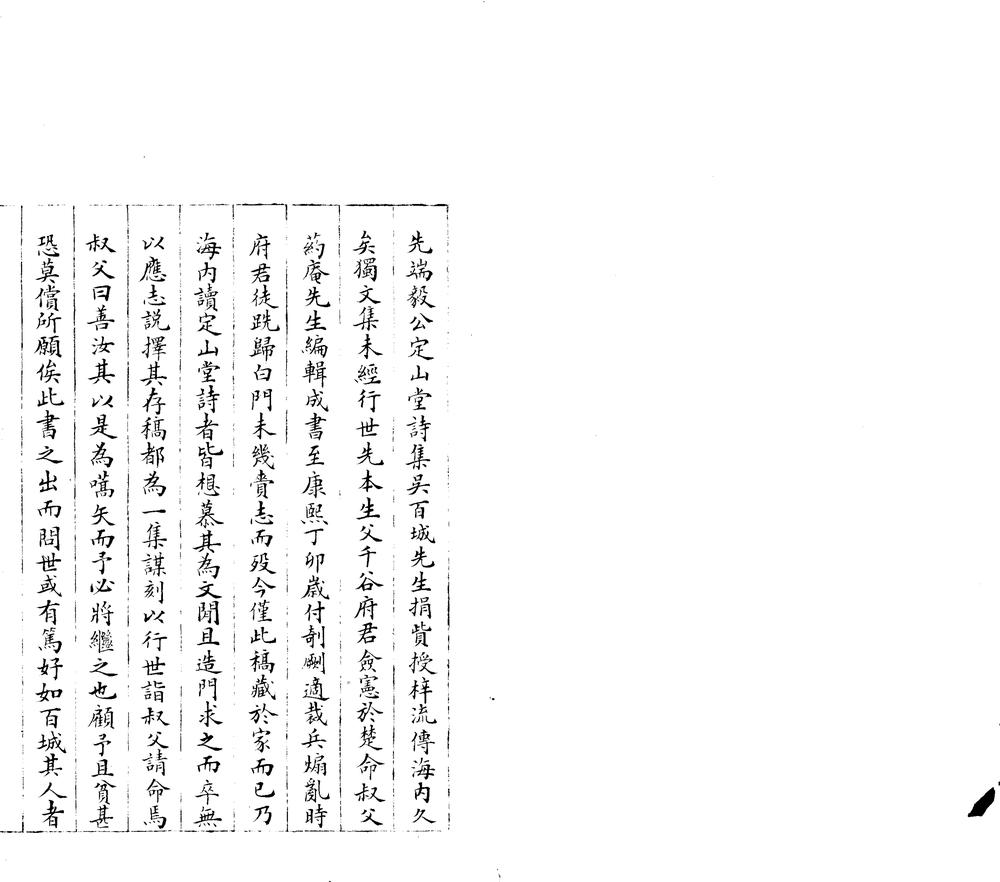 先端毅公定山堂詩集吳百城先生捐貲授梓流傳海内久
矣獨文集未經行世先本生父千谷府君僉憲於楚命叔父
葯庵先生編輯成書至康熙丁卯歲付剞劂適裁兵煽亂時
府君徒跣歸白門未幾賫志而歿今僅此稿藏於家而已乃
海内讀定山堂詩者皆想慕其為文聞且造門求之而卒無
以應志説擇其存稿都為一集謀刻以行世詣叔父請命焉
叔父曰善汝其以是為嚆矢而予必將繼之也顧予且貧甚
恐莫償所願俟此書之出而問世或有篤好如百城其人者